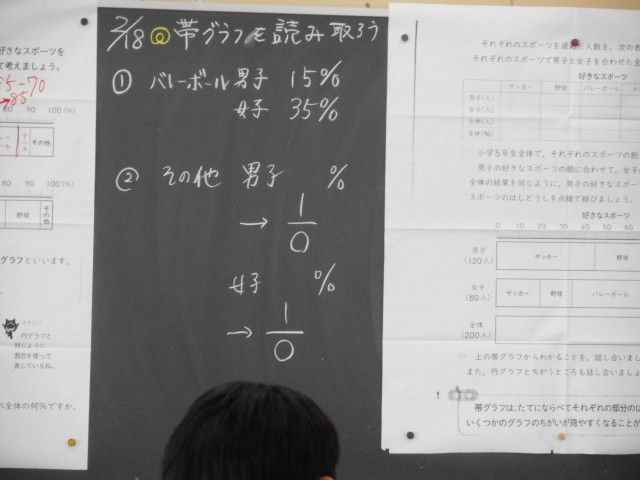 2/18 ◎ 帯グラフを読み取ろう
① バレーボール 男子 15%
女子 35%
② その他 男子 %
→ 1/0
女子 %
→ 1/0
好きなスポーツを
て考えましょう。
5-70
→85
80 90 100(%)
テニス その他
80 90 100(%)
野球 その他
グラフといいます。
円グラフと
同じように
割合を使って
表しているね。
全体の何%ですか。
それぞれのスポーツを選んだ人数を、次の表
それぞれのスポーツで男子と女子を合わせた全
好きなスポーツ
サッカー 野球 バレーボール テニス
男子(人)
女子(人)
全体(人)
全体(%)
小学5年生全体で、それぞれのスポーツの割
男子の好きなスポーツの順に合わせて、女子
全体の結果を同じように、男子の好きなスポー
スポーツのはしどうしを点線で結びましょう。
好きなスポーツ
0 10 20 30 40 50 60
男子
(120人)
サッカー 野球
女子
(80人)
サッカー 野球 バレーボール
全体
(200人)
上の帯グラフからわかることを、話し合いまし
また、円グラフとちがうところも話し合いましょ
帯グラフは、たてにならべてそれぞれの部分の
いくつかのグラフのちがいが見やすくなることが